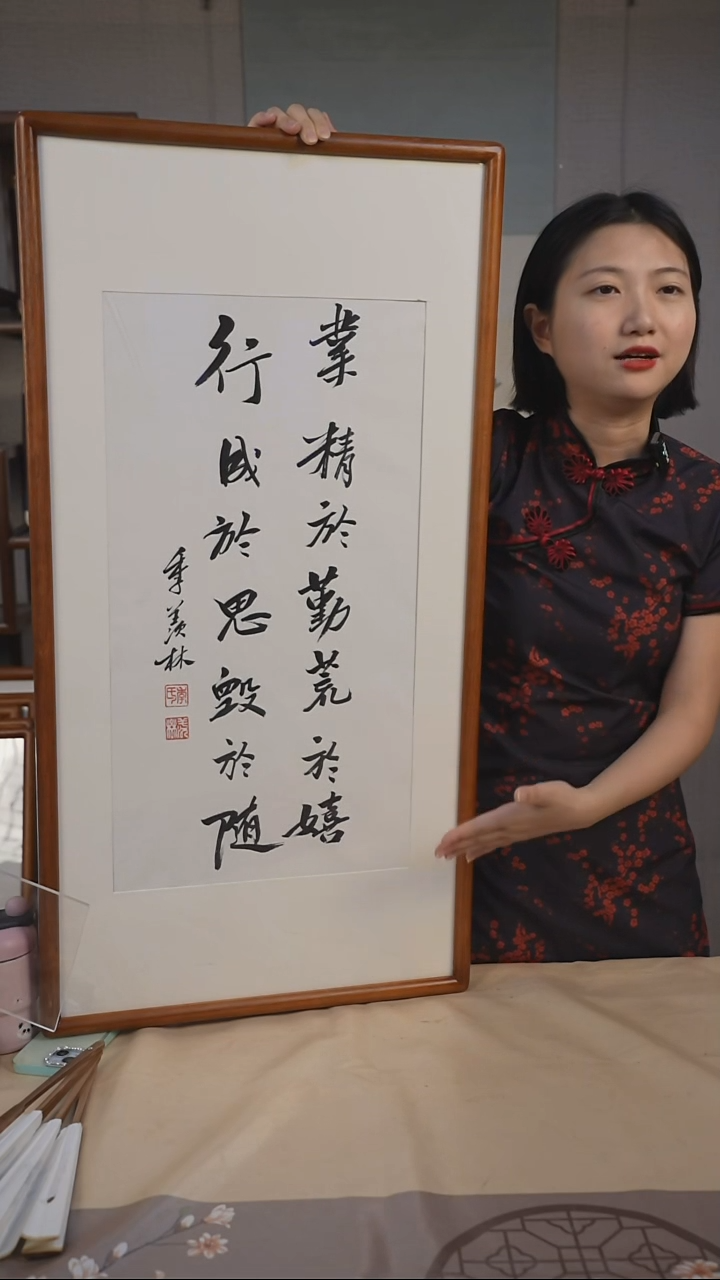 業精於勤荒於嬉
行成於思毀於随
季羨林